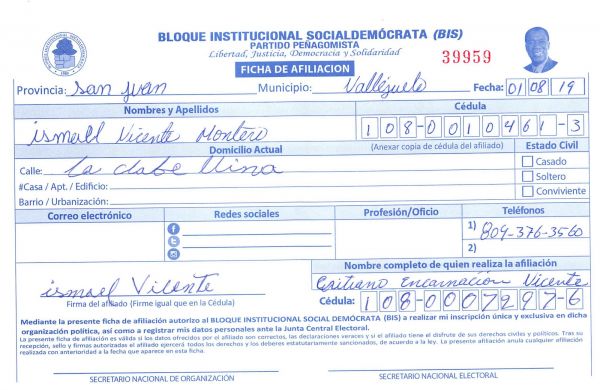 BLOQUE INSTITUCIONAL SOCIALDEMÓCRATA (BIS)
PARTIDO PEÑAGOMISTA
Libertad, Justicia, Democracia y Solidaridad
39959
FICHA DE AFILIACION
Provincia: San Juan Municipio: Vallejuelo Fecha: 01 08 19
Nombres y Apellidos Cédula
ismael Vicente Montero 108-0010461-3
Domicilio Actual (Anexar copia de cédula del afiliado) Estado Civil
Calle: La
Casado
#Casa / Apt. / Edificio:
Soltero
Barrio / Urbanización:
Conviviente
Correo electrónico Redes sociales Profesión/Oficio Teléfonos
1) 809-376-3560
2)
Nombre completo de quien realiza la afiliación
ismael Vicente Cristiano Encarnación Vicente
Firma del afiliado (Firme igual que en la Cédula) Cédula: 108-0007297-6
Mediante la presente ficha de afiliación autorizo al BLOQUE INSTITUCIONAL SOCIAL DEMÓCRATA (BIS) a realizar mi inscripción única y exclusiva en dicha
organización política, así como a registrar mis datos personales ante la Junta Central Electoral.
La presente ficha de afiliación es válida si los datos ofrecidos por el afiliado son correctos, las declaraciones veraces y si el afiliado tiene el disfrute de sus derechos civiles y políticos. Tras su
recepción, sello y firmas autorizadas el afiliado ejercerá todos los derechos y los deberes estatutariamente sancionados, de acuerdo a la ley. La presente afiliación anula cualquier afiliación
realizada con anterioridad a la fecha que aparece en esta ficha.
SECRETARIO NACIONAL DE ORGANIZACIÓN SECRETARIO NACIONAL ELECTORAL